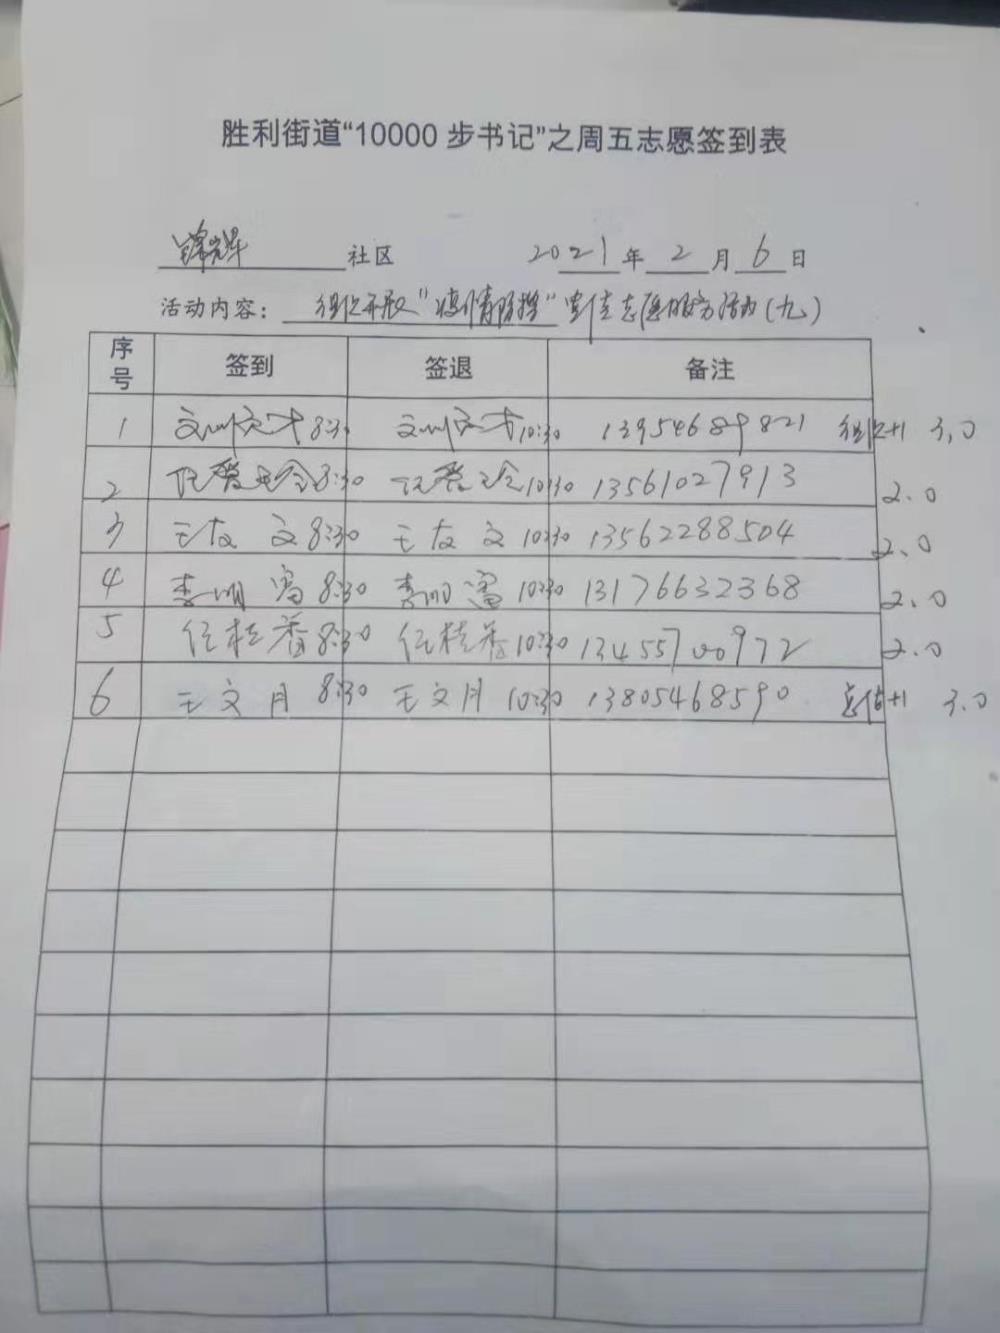 胜利街道“10000 步书记”之周五志愿签到表
锦辉 社区 2021 年 2 月 6 日
活动内容： 组织开展“疫情防控”宣传志愿服务活动（九）
序号 签到 签退 备注
1 8:30 10:30 13954689821 组织+1 3.0
2 任爱玲 8:30 任爱玲 10:30 13561027913 2.0
3 王友文 8:30 王友文 10:30 13562288504 2.0
4 李明富 8:30 李明富 10:30 13176632368 2.0
5 任桂香 8:30 任桂香 10:30 13455700972 2.0
6 王文月 8:30 王文月 10:30 13805468590 +1 3.0